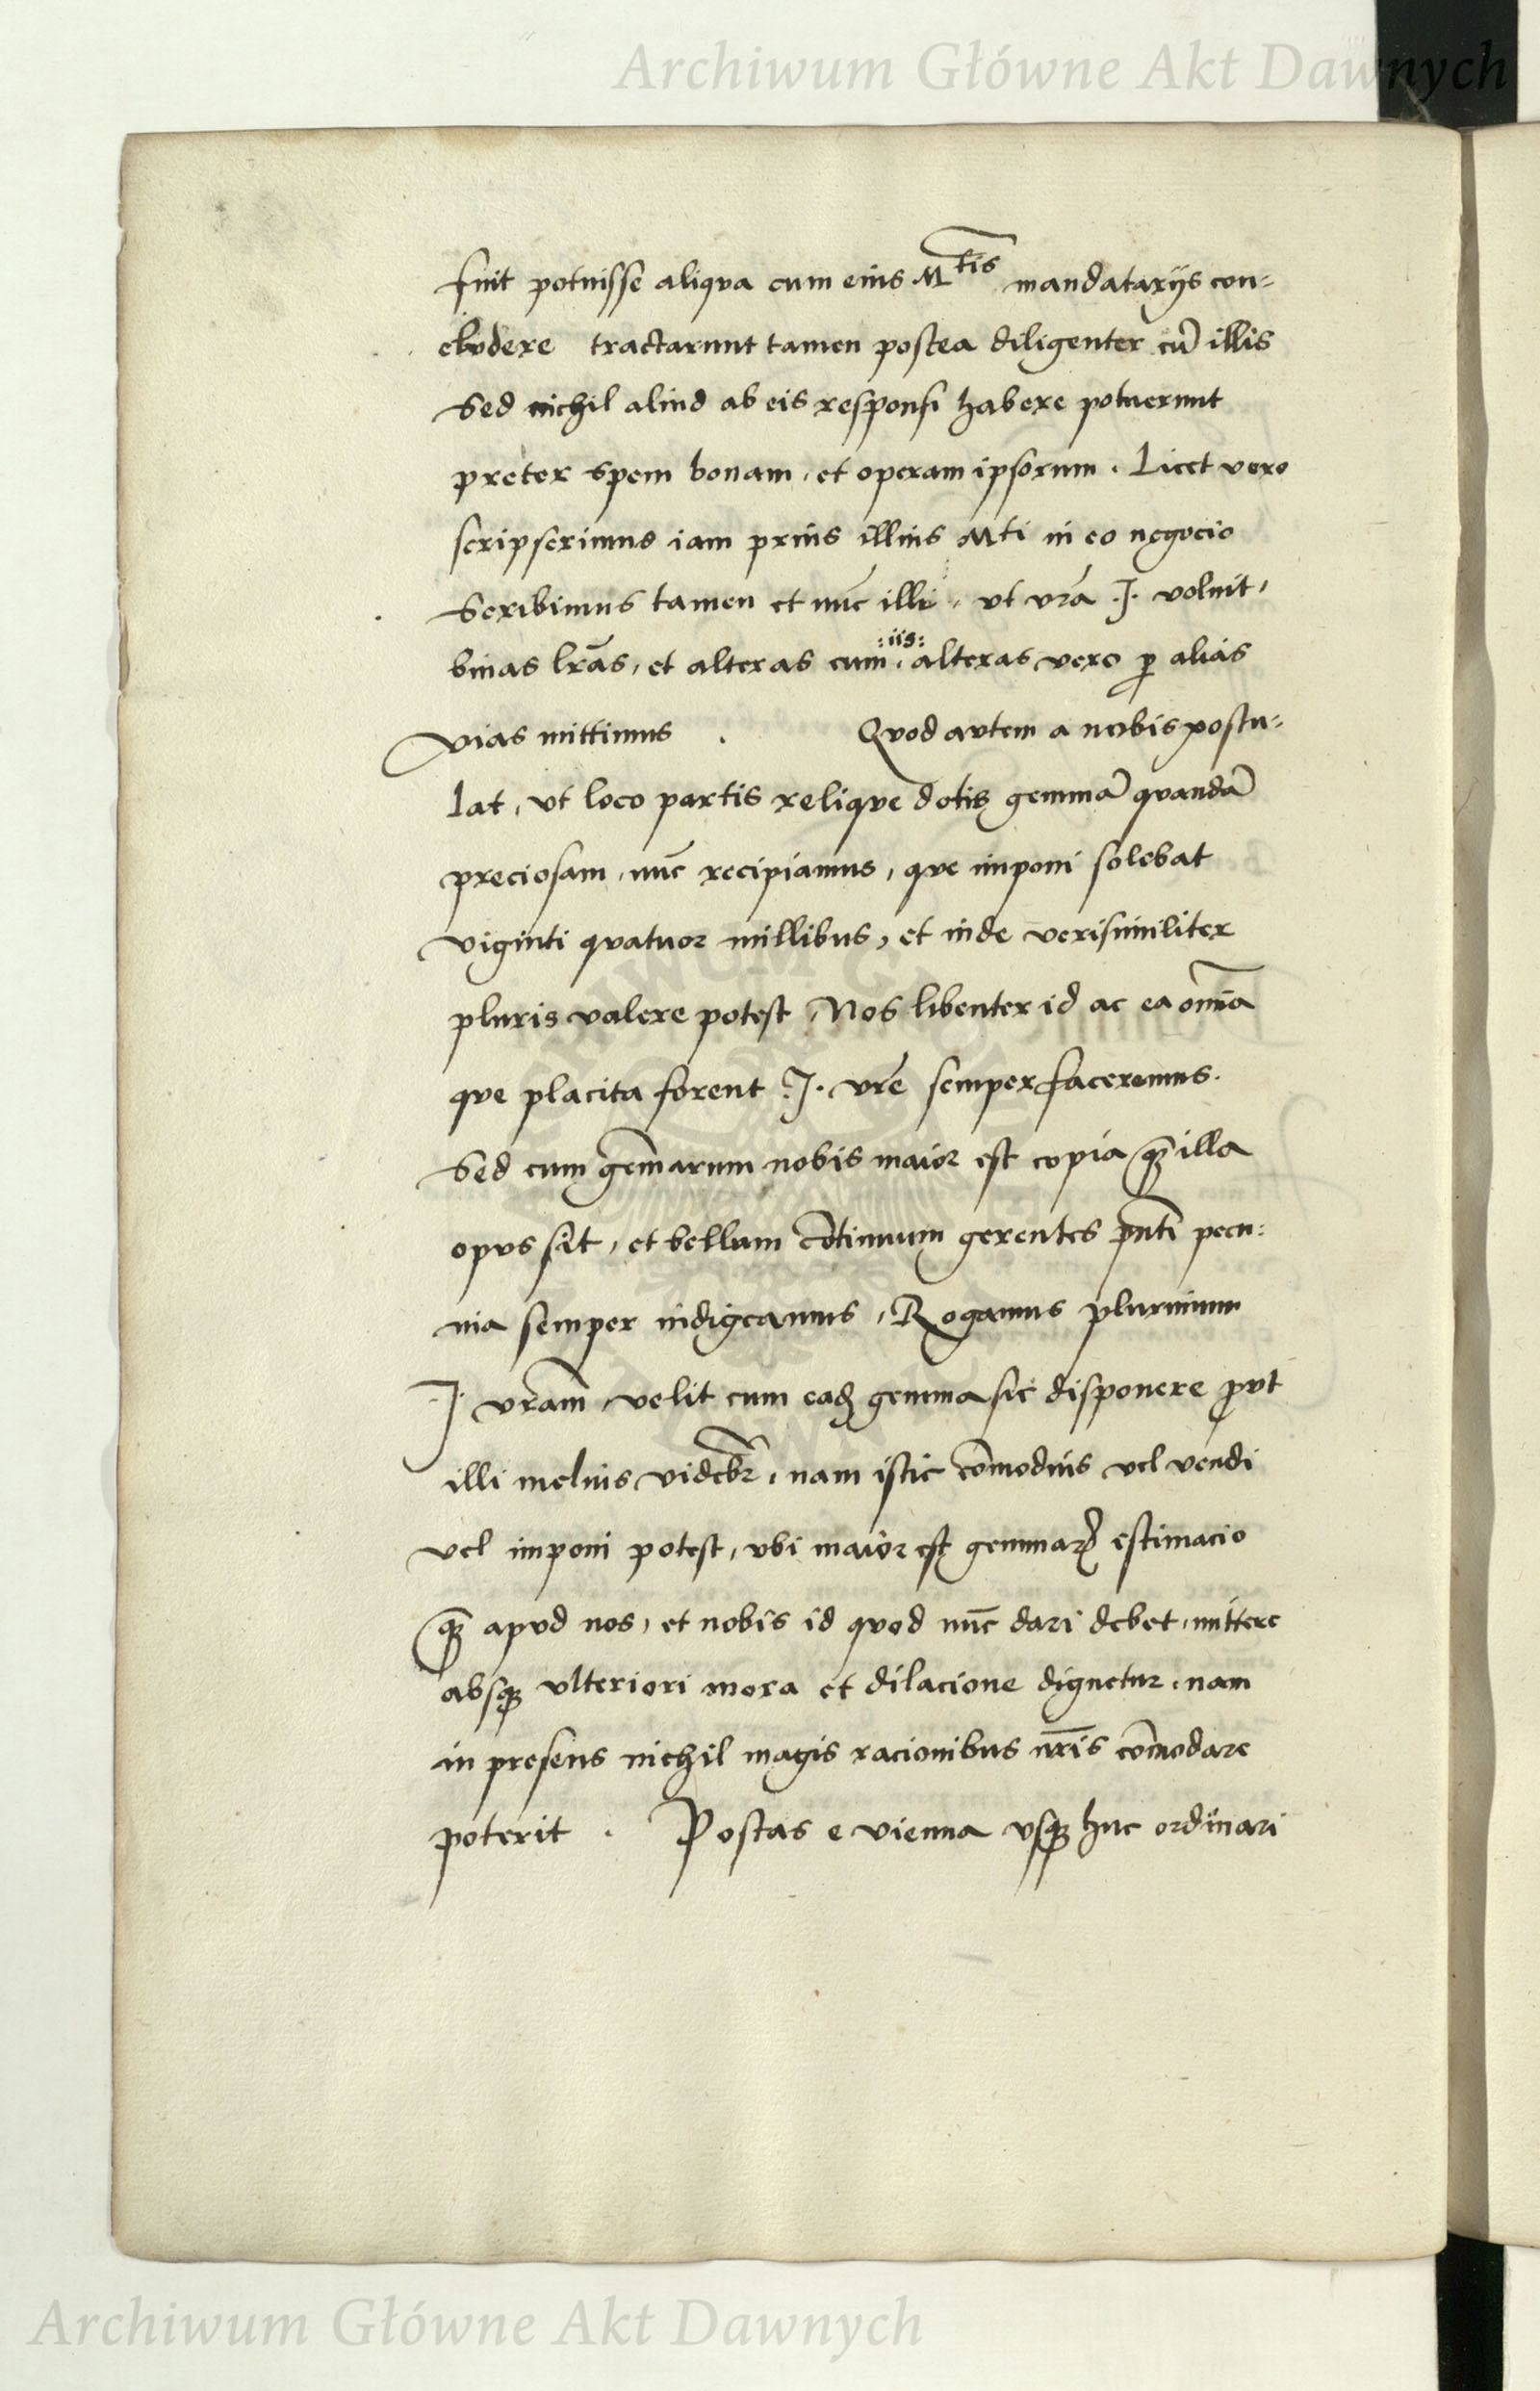 Archiwum Główne Akt Dawnych
fuit potuisse aliqva cum eius Mtis mandatarijs con=
clvdere tractarunt tamen postea diligenter cu̅ illis
Sed nichil aliud ab eis responsi habere potuerunt
preter spem bonam, et operam ipsorum. Licet vero
scripserimus iam prius illius Mti in eo negocio
Scribimus tamen et nu̅c illi, vt vr̅a .J. voluit,
binas lr̅as, et alteras cum :iis: alteras vero ꝑ alias
vias mittimus . Qvod avtem a nobis postu=
lat, vt loco partis reliqve dotis gemma̅ qvanda̅
preciosam, nu̅c recipiamus, qve imponi solebat
viginti qvatuor millibus, et inde verisimiliter
pluris valere potest, Nos libenter id ac ea om̅ia
qve placita forent .J. vr̅e semper faceremus.
Sed cum gem̅arum nobis maior est copia qꝫ̅ illa
opvs sit, et bellum co̅tinuum gerentes pn̅ti pecu=
nia semper indigeamus, Rogamus plurimum
J. vr̅am, velit cum eadꝫ gemma sic disponere ꝓvt
illi melius videbr̅, nam istic com̅odius vel vendi
vel imponi potest, vbi maior est gemmarꝫ estimacio
qꝫ̅ apvd nos, et nobis id qvod nu̅c dari debet, mittere
absqꝫ vlteriori mora et dilacione dignetur, nam
in presens nichil magis racionibus nr̅is com̅odare
poterit . Postas e vienna vsqꝫ huc ordinari
Archiwum Główne Akt Dawnych